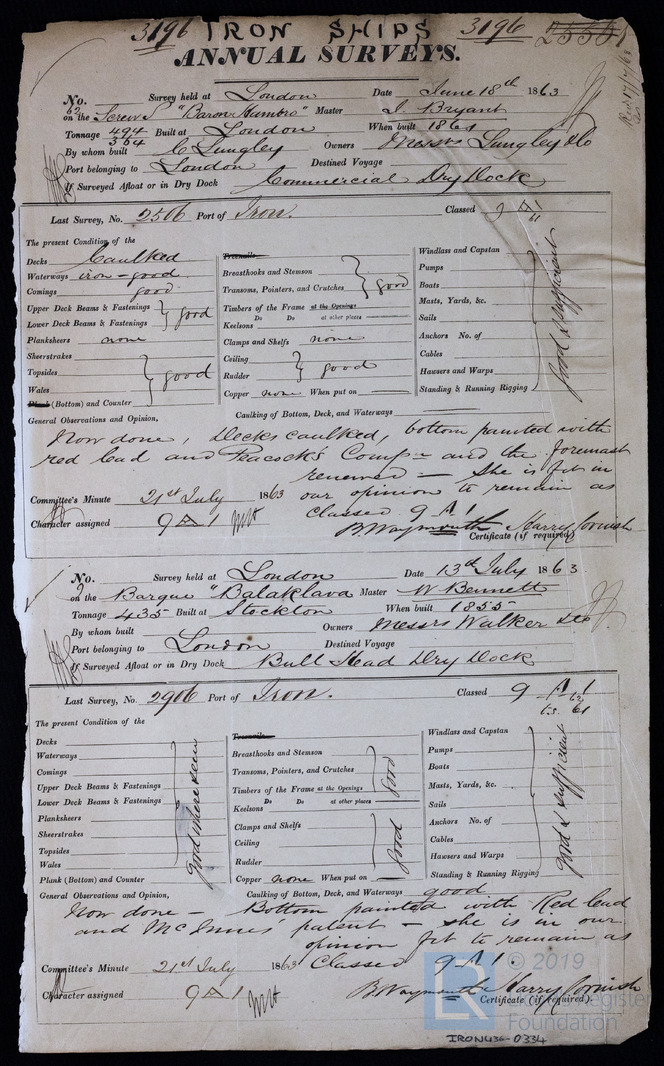 3196 IRON SHIPS 3196
ANNUAL SURVEYS.
No. 62 Survey held at London Date June 18th 1863
on the Screw S "Baron Hambro" Master J. Bryant
Tonnage 494 364 Built at London When built 1861
By whom built C Lungley Owners Messrs Lungley & Co
Port belonging to London Destined Voyage
If Surveyed Afloat or in Dry Dock Commercial Dry Dock
Last Survey, No. 2506 Port of Iron. Classed 9 A 1
The present Condition of the
Decks Caulked
Waterways iron - good
Comings good
Upper Deck Beams & Fastenings
Lower Deck Beams & Fastenings } good
Planksheers none
Sheerstrakes
Topsides } good
Wales
Plank (Bottom) and Counter
Treenails
Breasthooks and Stemson
Transoms, Pointers, and Crutches } good
Timbers of the Frame at the Openings
Do Do at other places
Keelsons
Clamps and Shelfs none
Ceiling
Rudder } good
Copper none When put on
Windlass and Capstan
Pumps
Boats
Masts, Yards, &c.
Sails
Anchors No. of
Cables
Hawsers and Warps
Standing & Running Rigging
good & sufficient
General Observations and Opinion, Caulking of Bottom, Deck, and Waterways
Now done, Decks caulked, bottom painted with
red lead and Peacock's Compn and the foremast
renewed - She is fit in
our opinion to remain as
Classed 9 A 1
Committee's Minute 21st July 1863
Character assigned 9 A 1
B. Waymouth Harry Cornish
Certificate (if required)
No. Survey held at London Date 13th July 1863
on the Barque "Balaklava Master W Bennett
Tonnage 435 Built at Stockton When built 1855
By whom built Owners Messrs Walker & Co
Port belonging to London Destined Voyage
If Surveyed Afloat or in Dry Dock Bull Head Dry Dock
Last Survey, No. 2906 Port of Iron. Classed 9 A 1
The present Condition of the
Decks
Waterways
Comings
Upper Deck Beams & Fastenings
Lower Deck Beams & Fastenings
Planksheers
Sheerstrakes
Topsides
Wales
Plank (Bottom) and Counter
good where seen
Treenails
Breasthooks and Stemson
Transoms, Pointers, and Crutches
Timbers of the Frame at the Openings
Do Do at other places
good
Keelsons
Clamps and Shelfs
Ceiling
Rudder
good
Copper none When put on
Windlass and Capstan
Pumps
Boats
Masts, Yards, &c.
Sails
Anchors No. of
Cables
Hawsers and Warps
Standing & Running Rigging
good & sufficient
General Observations and Opinion, Caulking of Bottom, Deck, and Waterways good
Now done - Bottom painted with Red lead
and McInnes patent - she is in our
opinion fit to remain as
Classed 9 A 1.
Committee's Minute 21st July 1863
Character assigned 9 A 1
B. Waymouth Harry Cornish
Certificate (if required).
LR © 2019
Lloyd's Register
Foundation
IRON436-0334